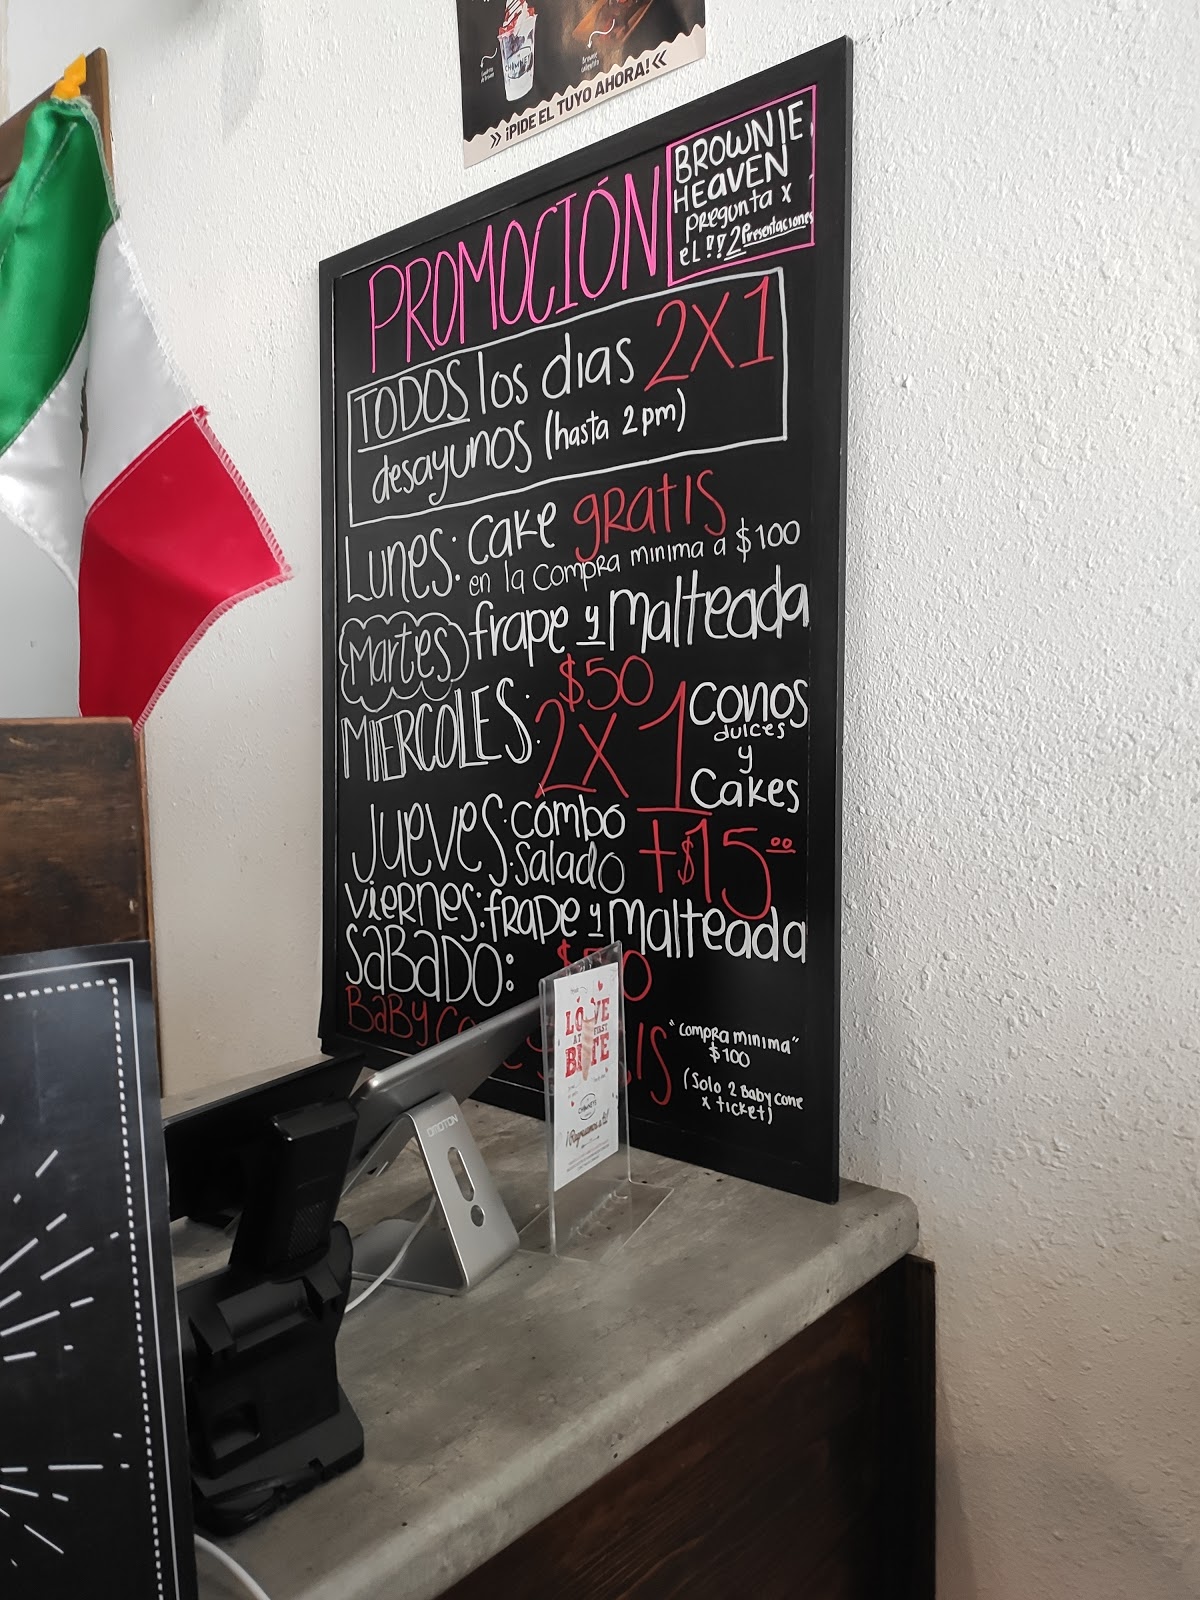 CHIMNEYS
» ¡PIDE EL TUYO AHORA! «
PROMOCIÓN
BROWNIE
HEAVEN
Pregunta x
el !! 2 Presentaciones
TODOS los dias 2X1
desayunos (hasta 2 pm)
Lunes: Cake gratis
en la compra minima a $100
Martes frape y Malteada
$50
MIERCOLES: 2X1 conos
dulces
y
Cakes
Jueves: combo
salado +$15.00
viernes: frape y Malteada
SABADO:
Baby
"compra minima"
$100
(Solo 2 Baby cone
x ticket)
LOVE
AT FIRST
BITE
CHIMNEYS
OMOTON